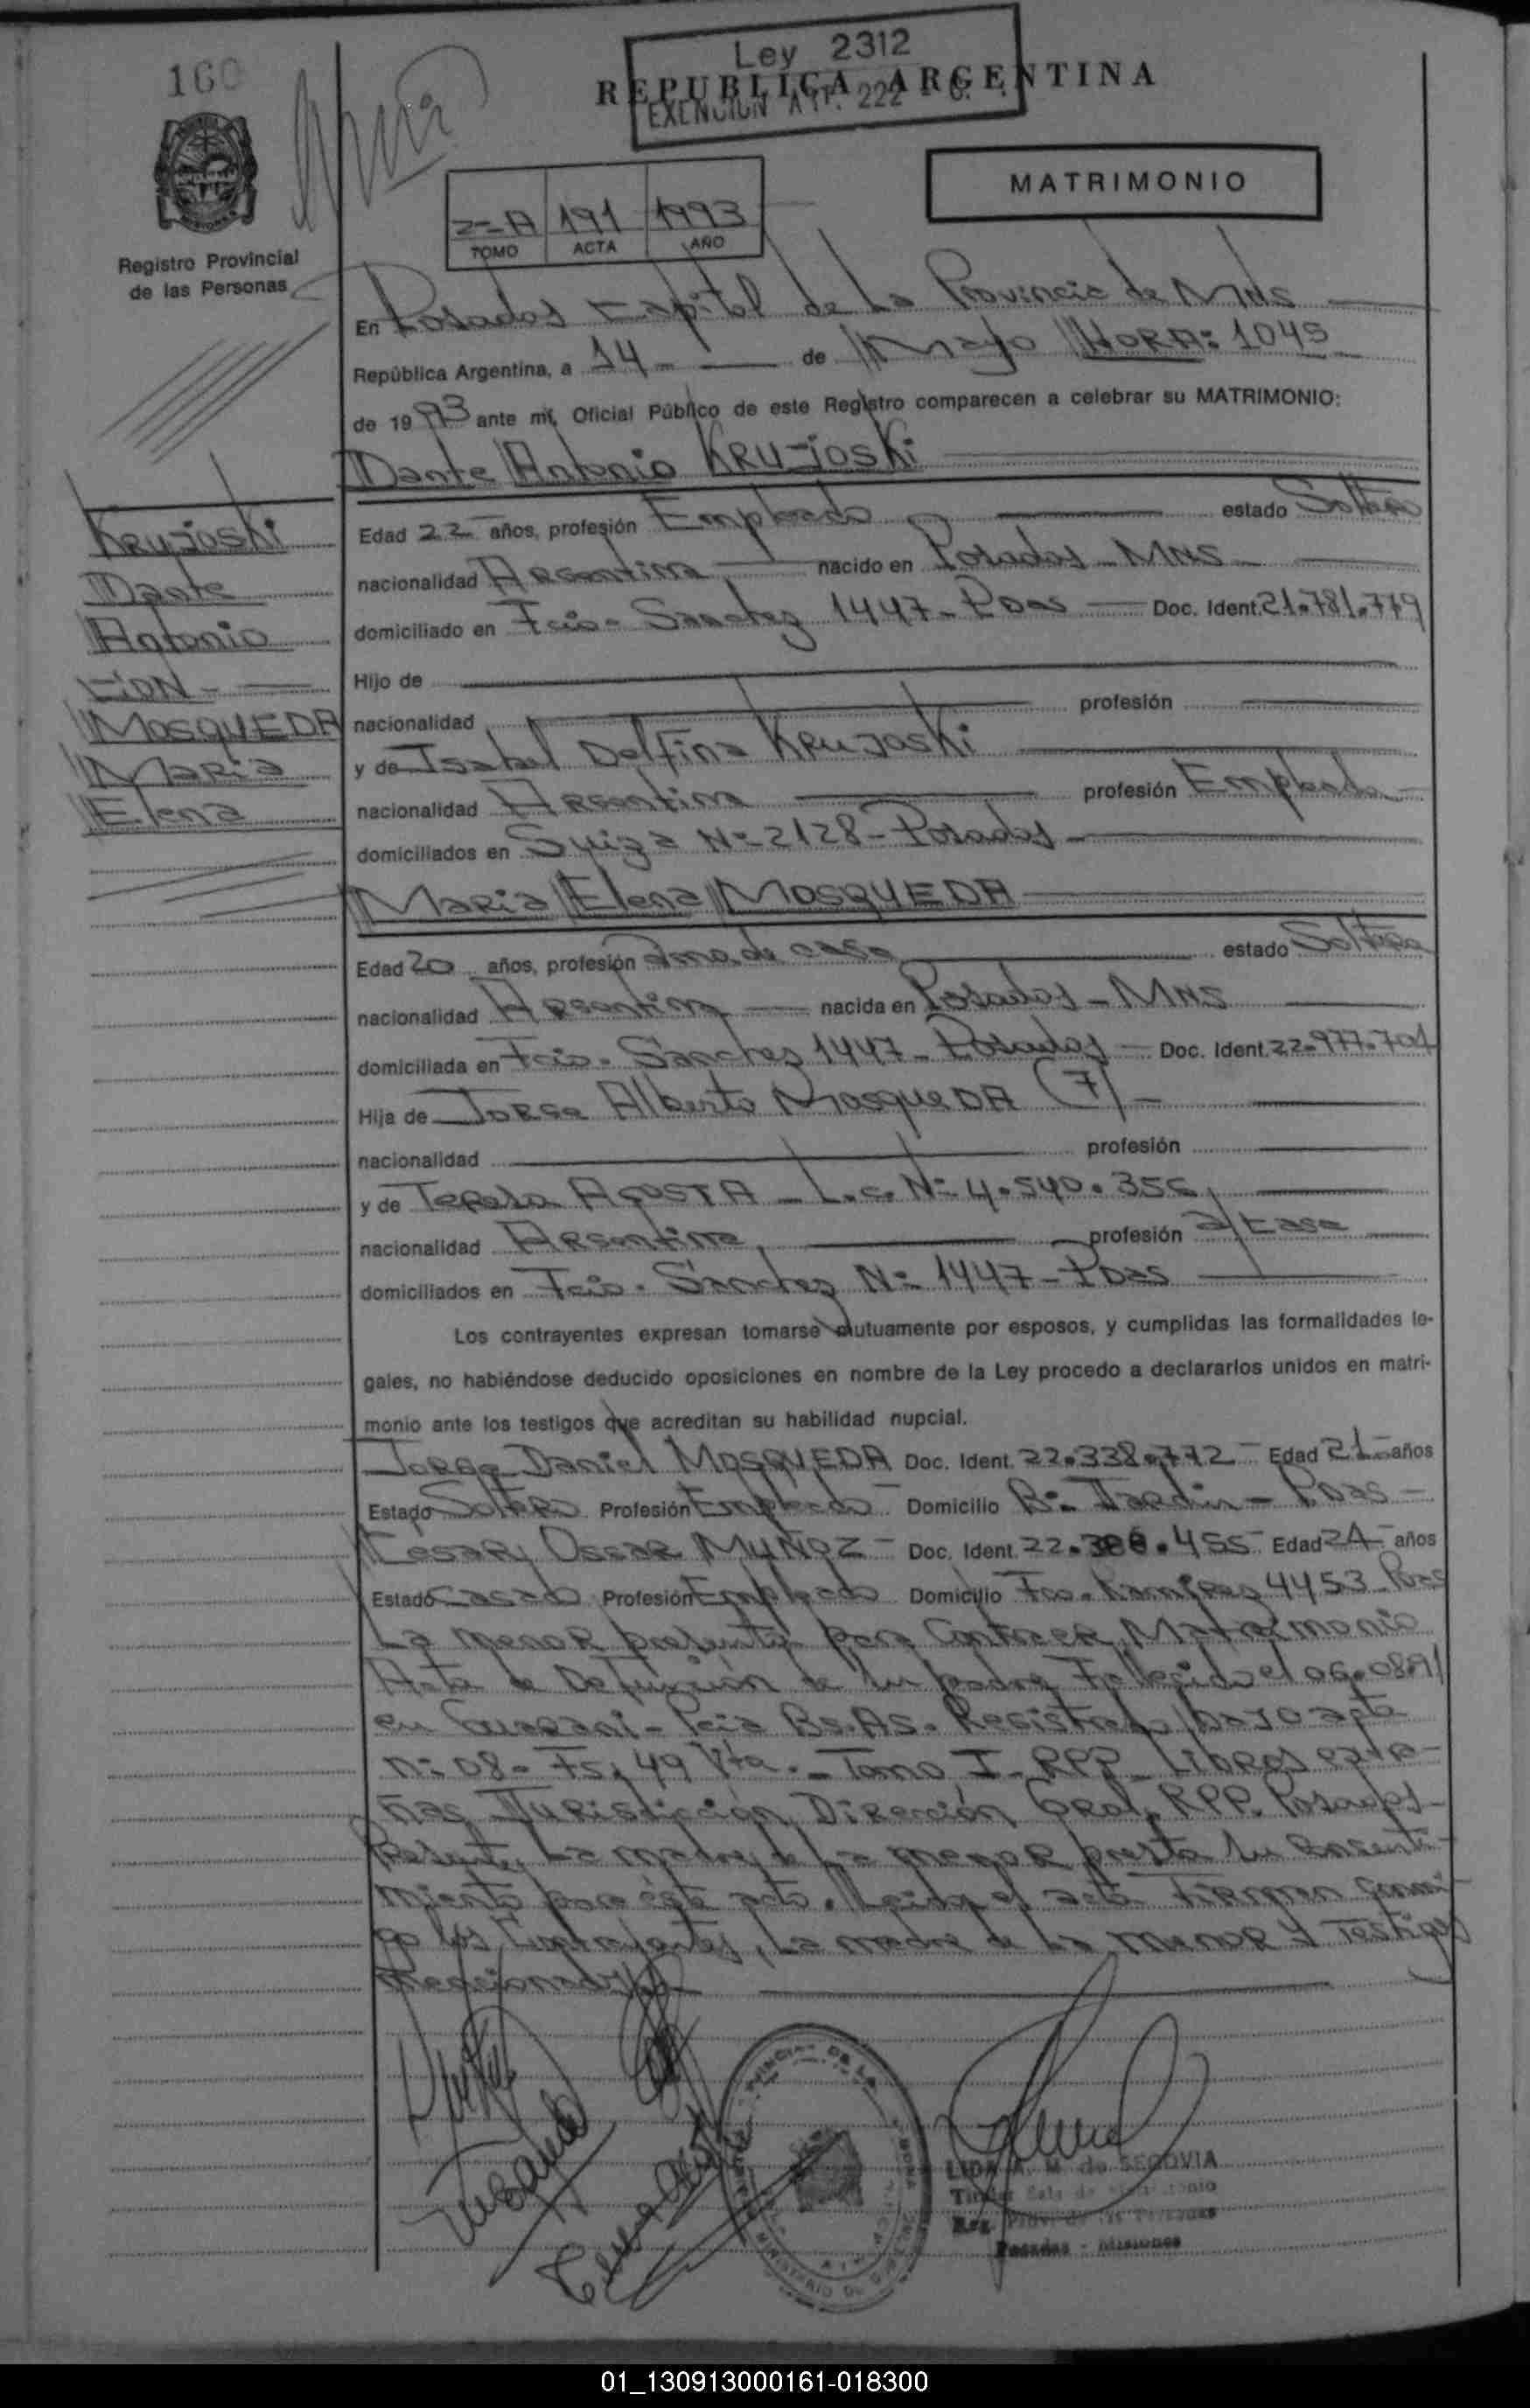 160
Ley 2312
REPUBLICA ARGENTINA
EXENCION ART. 222
MATRIMONIO
2-A 191 1993
TOMO ACTA AÑO
Registro Provincial
de las Personas
En Posadas Capital de La Provincia de MNS
República Argentina, a 14 de Mayo HORA: 1045
de 1993 ante mí, Oficial Público de este Registro comparecen a celebrar su MATRIMONIO:
Dante Antonio KRUJOSKi
KRUJOSKi
Dante
Antonio
CON
MOSQUEDA
MARIA
Elena
Edad 22 años, profesión Empleado estado Soltero
nacionalidad Argentina nacido en Posadas MNS
domiciliado en Fcio. Sanchez 1447 - Pdas Doc. Ident. 21.781.779
Hijo de
nacionalidad profesión
y de Isabel Delfina KRUJOSKi
nacionalidad Argentina profesión Empleada
domiciliados en Suiza Nº 2128 - Posadas
MARIA Elena MOSQUEDA
Edad 20 años, profesión ama de casa estado Soltera
nacionalidad Argentina nacida en Posadas - MNS
domiciliada en Fcio. Sanchez 1447 - Posadas Doc. Ident. 22.977.701
Hija de Jorge Alberto MosqueDA (7)
nacionalidad profesión
y de Teresa AcosTA - L.c. Nº 4.540.356
nacionalidad Argentina profesión a/casa
domiciliados en Fcio. Sanchez Nº 1447 - Pdas
Los contrayentes expresan tomarse mutuamente por esposos, y cumplidas las formalidades le-
gales, no habiéndose deducido oposiciones en nombre de la Ley procedo a declararlos unidos en matri-
monio ante los testigos que acreditan su habilidad nupcial.
Jorge Daniel MOSQUEDA Doc. Ident. 22.338.772 Edad 21 años
Estado Soltero Profesión Empleado Domicilio Bº Jardin - Pdas
Cesar Oscar MUÑOZ Doc. Ident. 22.306.455 Edad 24 años
Estado casado Profesión Empleado Domicilio Fco. Ramires 4453 Pdas
La menor presenta para Contraer Matrimonio
Acta de Defunción de su padre Fallecido el 06.08.91
en Guarani - Pcia Bs.As. Registrado bajo acta
nº 08 - Fº 49 Vta. - Tomo I - RPP - Libros extra-
ñas Jurisdicción Dirección Gral. RPP. Posadas -
Presente La madre de La menor presta su consenti-
miento para éste acto. Leida el acta Firman conmi-
go los contrayentes, La madre de La menor y Testigos
mencionados
LIDA A. M. de SEGOVIA
Titular Sala de Matrimonio
Reg. Prov. de las Personas
Posadas - Misiones
01_130913000161-018300